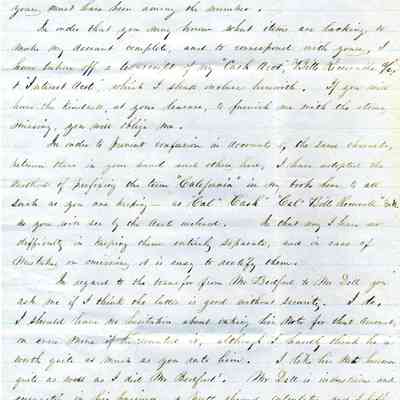 yours, must have been among the number.
In order that you may know what items are lacking to
make my account complete, and to correspond with yours, I
have taken off a transcript of my "Cash Acct", "Bills Receivable a/c,
& Interest Acct", which I shall enclose herewith. If you will
have the kindness, at your leisure, to furnish me with the items
missing, you will oblige me.
In order to prevent confusion in accounts of the same character,
between there in your hand and others here, I have adopted the
method of prefixing the term "California" in my books here to all
such as you are keeping — as "Cal" "Cash" "Cal" "Bills Receivable"
as you will see by the Acct enclosed. In that way I have no
difficulty in keeping them entirely separate, and in case of
mistake, or omission, it is easy to rectify them.
In regard to the transfer from Mr Bedford to Mr Dell you
ask me if I think the latter is good without security. I do.
I should have no hesitation about taking his Note for that amount,
or even more if he wanted it, although I hardly think he is
worth quite as much as you rate him. I like him
quite as well as I did Mr Bedford. Mr Dell is industrious and
in his business, a